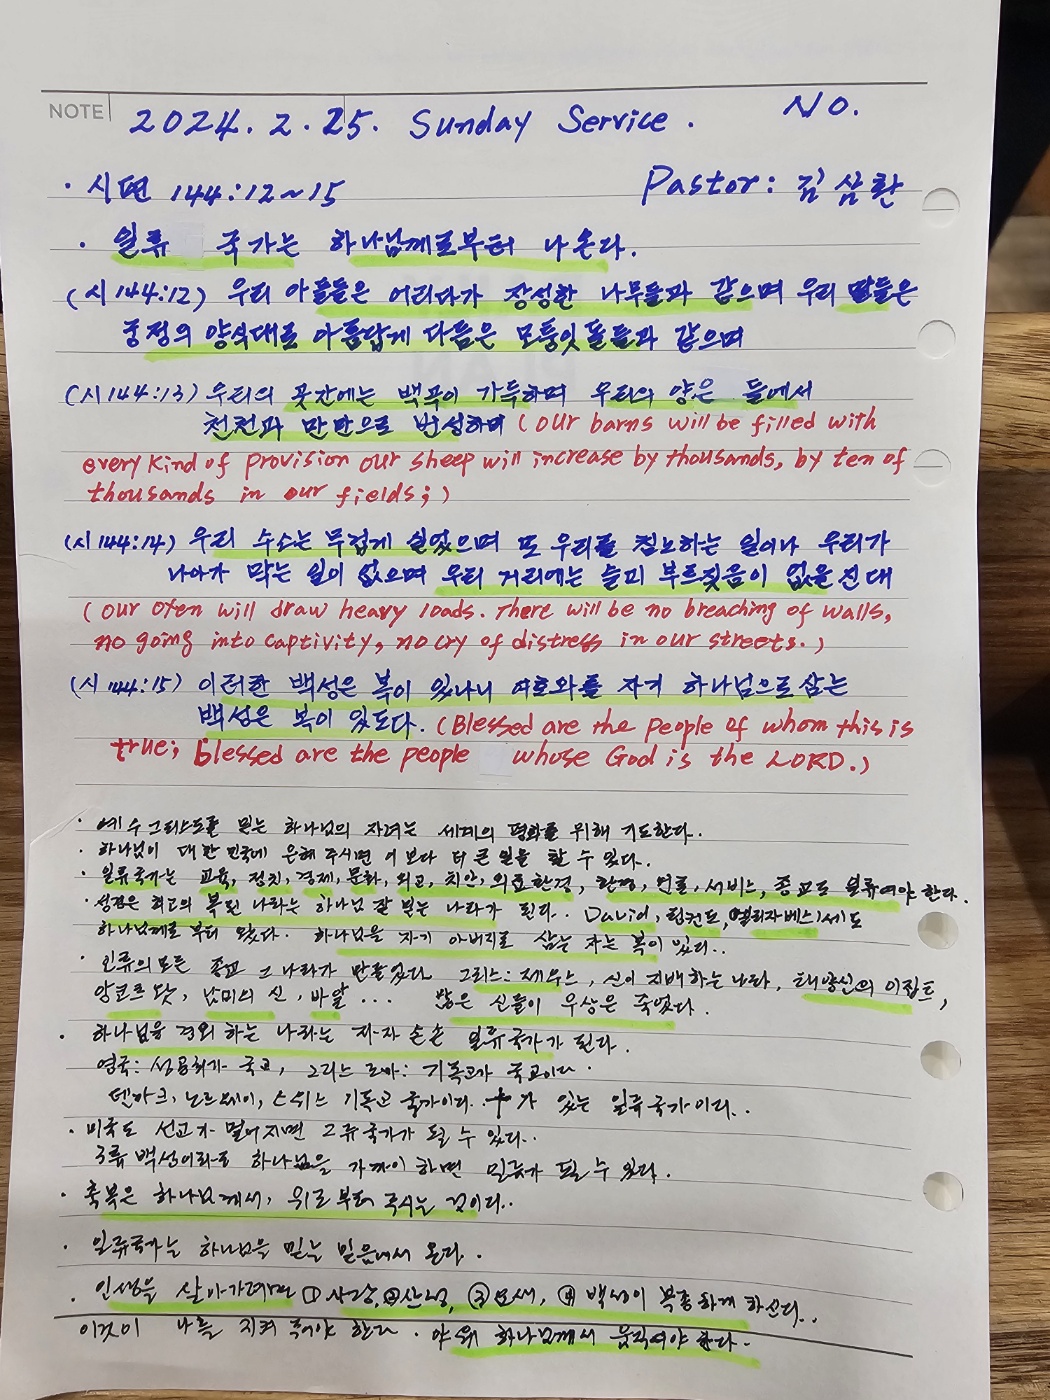 NOTE 2024. 2. 25. Sunday Service. NO.
· 시편 144:12~15 Pastor: 김삼환
· 일류 국가는 하나님께로부터 나온다.
(시144:12) 우리 아들들은 어리다가 장성한 나무들과 같으며 우리 딸들은
궁정의 양식대로 아름답게 다듬은 모퉁잇돌들과 같으며
(시144:13) 우리의 곳간에는 백곡이 가득하며 우리의 양은 들에서
천천과 만만으로 번성하며 (our barns will be filled with
every kind of provision our sheep will increase by thousands, by ten of
thousands in our fields;)
(시144:14) 우리 수소는 무겁게 실었으며 또 우리를 침노하는 일이나 우리가
나아가 막는 일이 없으며 우리 거리에는 슬피 부르짖음이 없을진대
(our oxen will draw heavy loads. There will be no breaching of walls,
no going into captivity, no cry of distress in our streets.)
(시144:15) 이러한 백성은 복이 있나니 여호와를 자기 하나님으로 삼는
백성은 복이 있도다. (Blessed are the people of whom this is
true; Blessed are the people whose God is the LORD.)
· 예수그리스도를 믿는 하나님의 자녀는 세계의 평화를 위해 기도한다.
· 하나님이 대한민국에 은혜 주시면 이보다 더 큰 일을 할 수 있다.
· 일류국가는 교육, 정치, 경제, 문화, 외교, 치안, 의료환경, 환경, 언론, 서비스, 종교도 일류여야 한다.
· 성경은 최고의 복된 나라는 하나님 잘 믿는 나라가 된다. David, 링컨도, 엘리자베스1세도
하나님께로부터 왔다. 하나님을 자기 아버지로 삼는 자는 복이 있다..
· 인류의 모든 종교 그 나라가 만들었다. 그리스: 제우스, 신이 지배하는 나라, 태양신의 이집트,
앙코르왓, 남미의 신, 바알 ... 많은 신들이 우상은 죽었다.
· 하나님을 경외하는 나라는 자자손손 일류국가가 된다.
영국: 성공회가 국교, 그리스 로마: 기독교가 국교이다.
덴마크, 노르웨이, 스위스 기독교 국가이다. ✝가 있는 일류국가이다..
· 미국도 선교가 멀어지면 그류국가가 될 수 있다..
3류 백성이라도 하나님을 가까이 하면 일류가 될 수 있다.
· 축복은 하나님께서, 위로부터 주시는 것이다..
· 일류국가는 하나님을 믿는 믿음에서 온다.
· 인생을 살아가려면 ①사랑, ②산성, ③요새, ④ 백성이 복종하게 하신다..
이것이 나를 지켜 주어야 한다. 하나님께서 움직여야 한다.